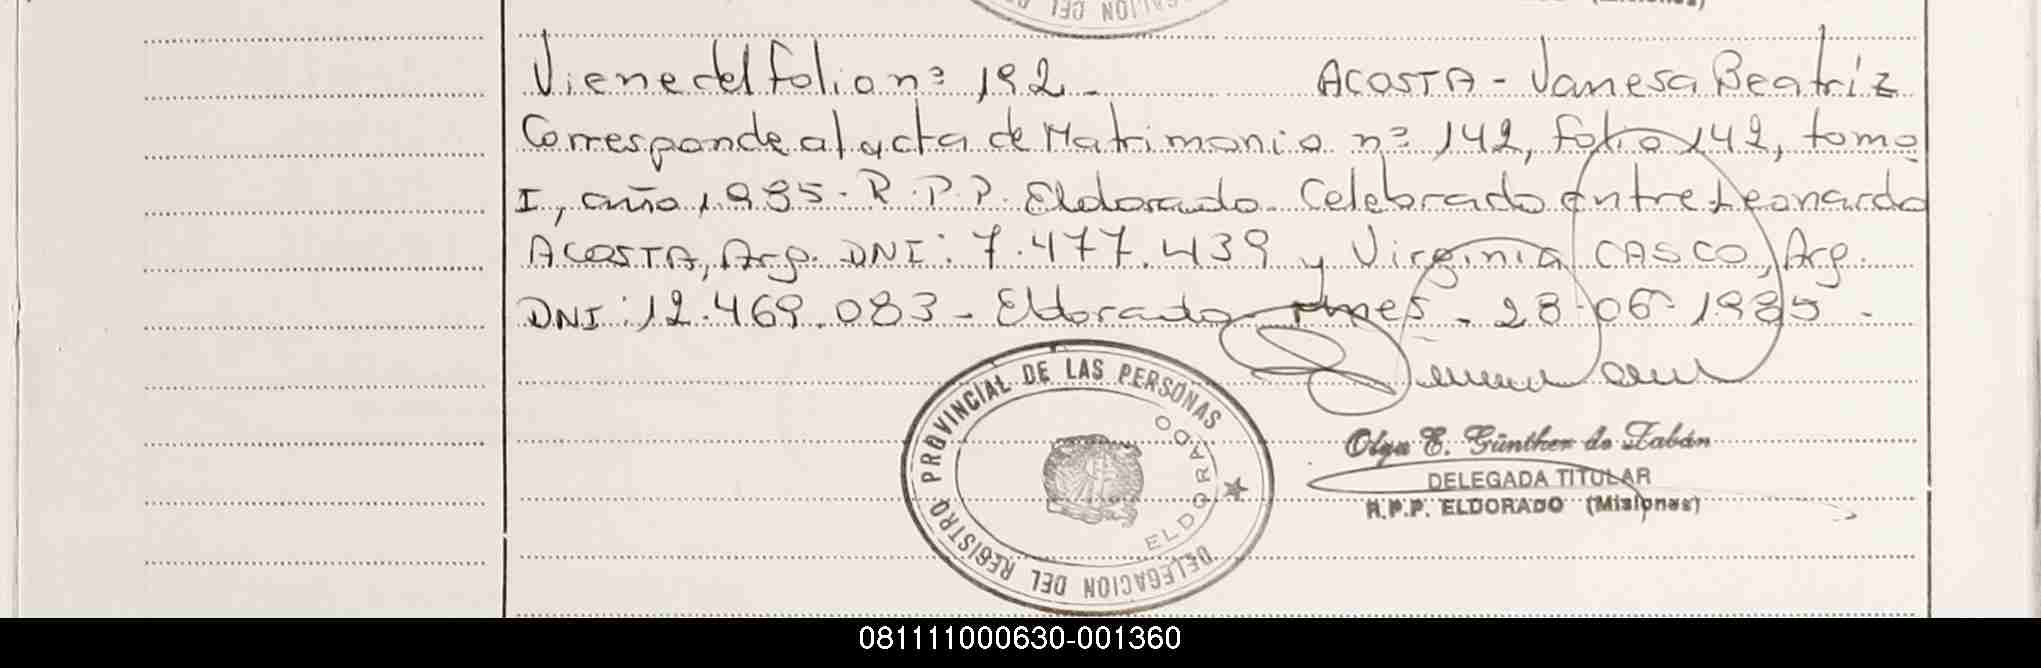 (Misiones)
DELEGACION DEL
Viene del folio nº 192.- ACOSTA - Vanesa Beatríz
Corresponde al acta de Matrimonio nº 142, folio 142, tomo
I, año 1.985.- R.P.P. Eldorado. Celebrado entre Leonardo
ACOSTA, Arg. DNI: 7.477.439 y Virginia CASCO, Arg.
DNI: 12.469.083 - Eldorado - Mnes. - 28-06-1985.-
DELEGACION DEL REGISTRO PROVINCIAL DE LAS PERSONAS
ELDORADO
Olga E. Günther de Zabán
DELEGADA TITULAR
R.P.P. ELDORADO (Misiones)
081111000630-001360